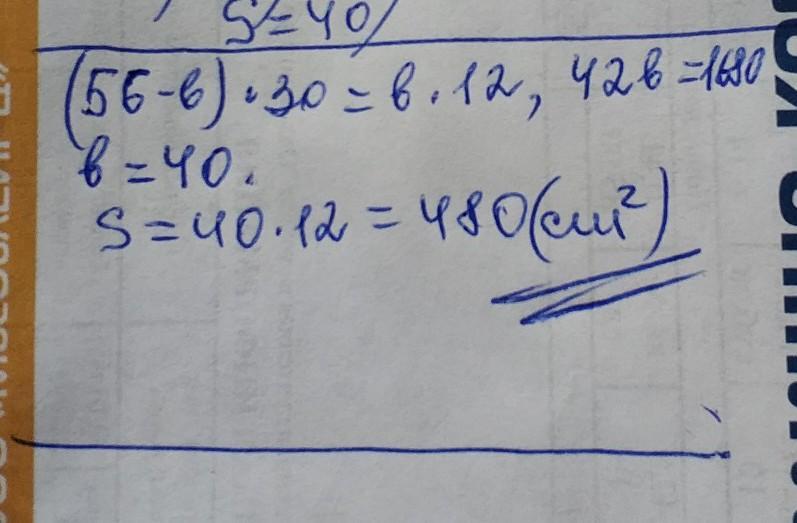 S = 40
(56-в)·30 = в·12, 42в = 1680
в = 40.
S = 40·12 = 480 (см²)